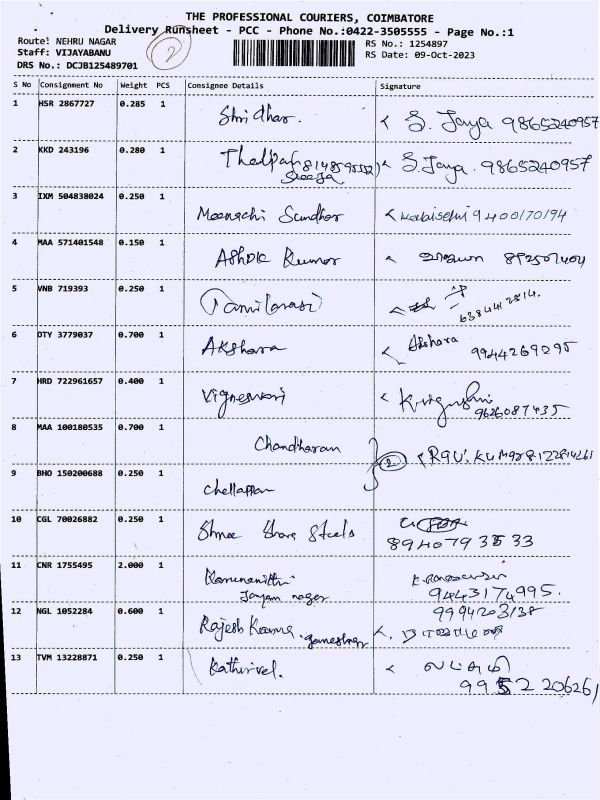 THE PROFESSIONAL COURIERS, COIMBATORE
Delivery Runsheet - PCC - Phone No.:0422-3505555 - Page No.:1
Route: NEHRU NAGAR
RS No.: 1254897
Staff: VIJAYABANU
2
RS Date: 09-Oct-2023
DRS No.: DCJB125489701
S No Consignment No Weight PCS Consignee Details Signature
1 HSR 2867727 0.285 1 Shridhar. S. Jaya 9865240957
2 KKD 243196 0.280 1 S. Jaya. 9865240957
3 IXM 504838024 0.250 1 Meenachi Sundhar 9400170194
4 MAA 571401548 0.150 1 Ashok Kumar
5 VNB 719393 0.250 1 Tamilarasi
6384412814.
6 OTY 3779037 0.700 1 Akshara Akshara
9944269295
7 HRD 722961657 0.400 1 Vigneswari
9626087435
8 MAA 100180535 0.700 1 Chandharan
2 8122814261
9 BHO 150200688 0.250 1 Chellappan
10 CGL 70026882 0.250 1 Shree Steels
8940793533
11 CNR 1755495 2.000 1 Karunanithi
Jayam nagar 9443174995.
12 NGL 1052284 0.600 1 9994203138
Rajesh Kanna
13 TVM 13228871 0.250 1 Kathirvel. லட்சுமி
9952206261